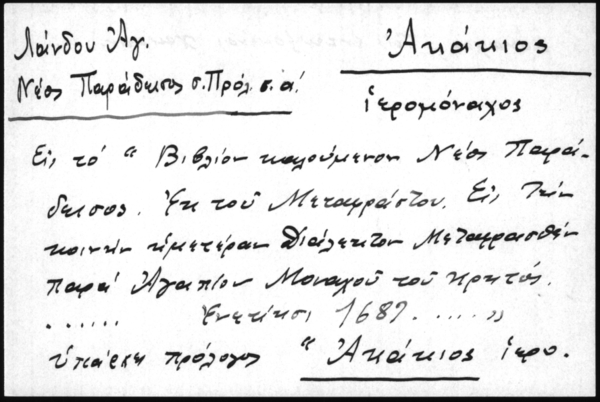 Λάνδου Ἀγ.
Νέος Παράδεισος σ. Πρόλ. σ. α΄.
Ἀκάκιος
ἱερομόναχος
Εἰς τό " Βιβλίον καλούμενον Νέος Παρά-
δεισος. Ἐκ τοῦ Μεταφράστου. Εἰς τήν
κοινήν ἡμετέραν Διάλεκτον Μεταφρασθέν
παρά Ἀγαπίου Μοναχοῦ τοῦ Κρητός.
...... Ἐνετίησι 1689. ..... "
ὑπάρχει πρόλογος " Ἀκάκιος ἱερο.